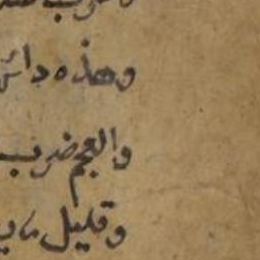 وهذه دائر
والعجم ضرب
وقليل ما